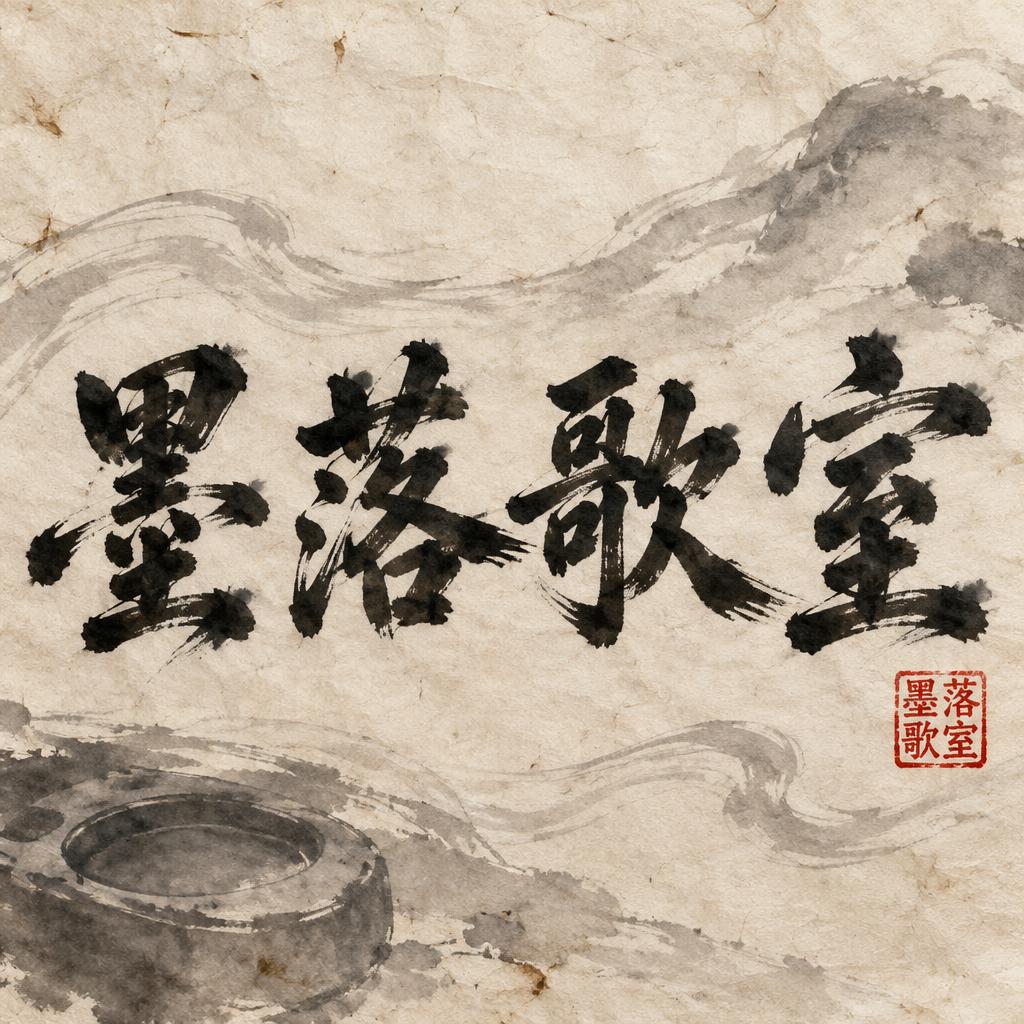 墨落歌室
墨落
歌室